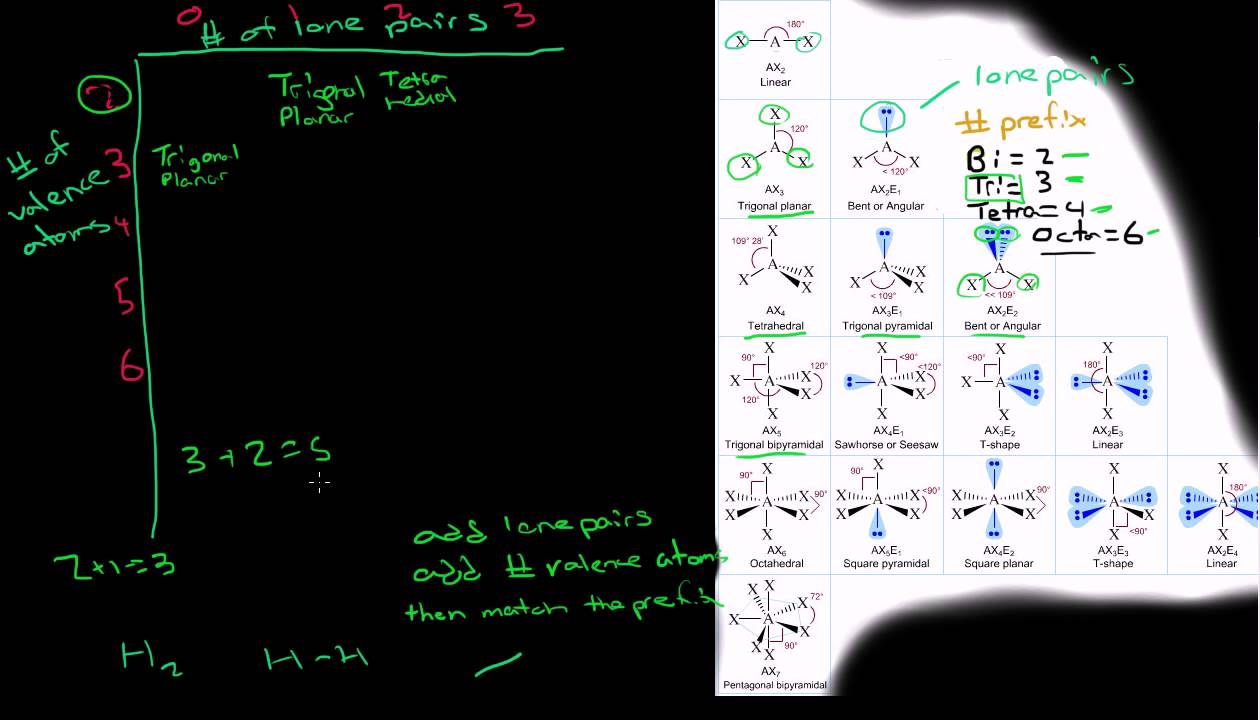 0 1 2 3
# of lone pairs
2
Trigonal Planar
Tetra hedral
# of valence atoms
3
Trigonal Planar
4
5
6
3 + 2 = 5
2+1=3
add lone pairs
add # valence atoms
then match the prefix
H2 H-H
180°
X A X
AX2
Linear
lone pairs
# prefix
Bi = 2
Tri = 3
Tetra = 4
Octa = 6
X
120°
A
X X
AX3
Trigonal planar
A
X X
< 120°
AX2E1
Bent or Angular
X
109° 28'
A
X X
X
AX4
Tetrahedral
A
X X
X
< 109°
AX3E1
Trigonal pyramidal
A
X X
<< 109°
AX2E2
Bent or Angular
X
90° 120°
X A X
X
120°
X
AX5
Trigonal bipyramidal
X
<90° <120°
A X
X
X
AX4E1
Sawhorse or Seesaw
X
<90°
X A
X
AX3E2
T-shape
X
180°
A
X
AX2E3
Linear
X
90°
X X 90°
A
X X
X
AX6
Octahedral
X
90°
X X <90°
A
X X
AX5E1
Square pyramidal
X X 90°
A
X X
AX4E2
Square planar
X
A
X
X <90°
AX3E3
T-shape
X
180°
A
X
AX2E4
Linear
X X
X 72°
X A
X
X X 90°
AX7
Pentagonal bipyramidal